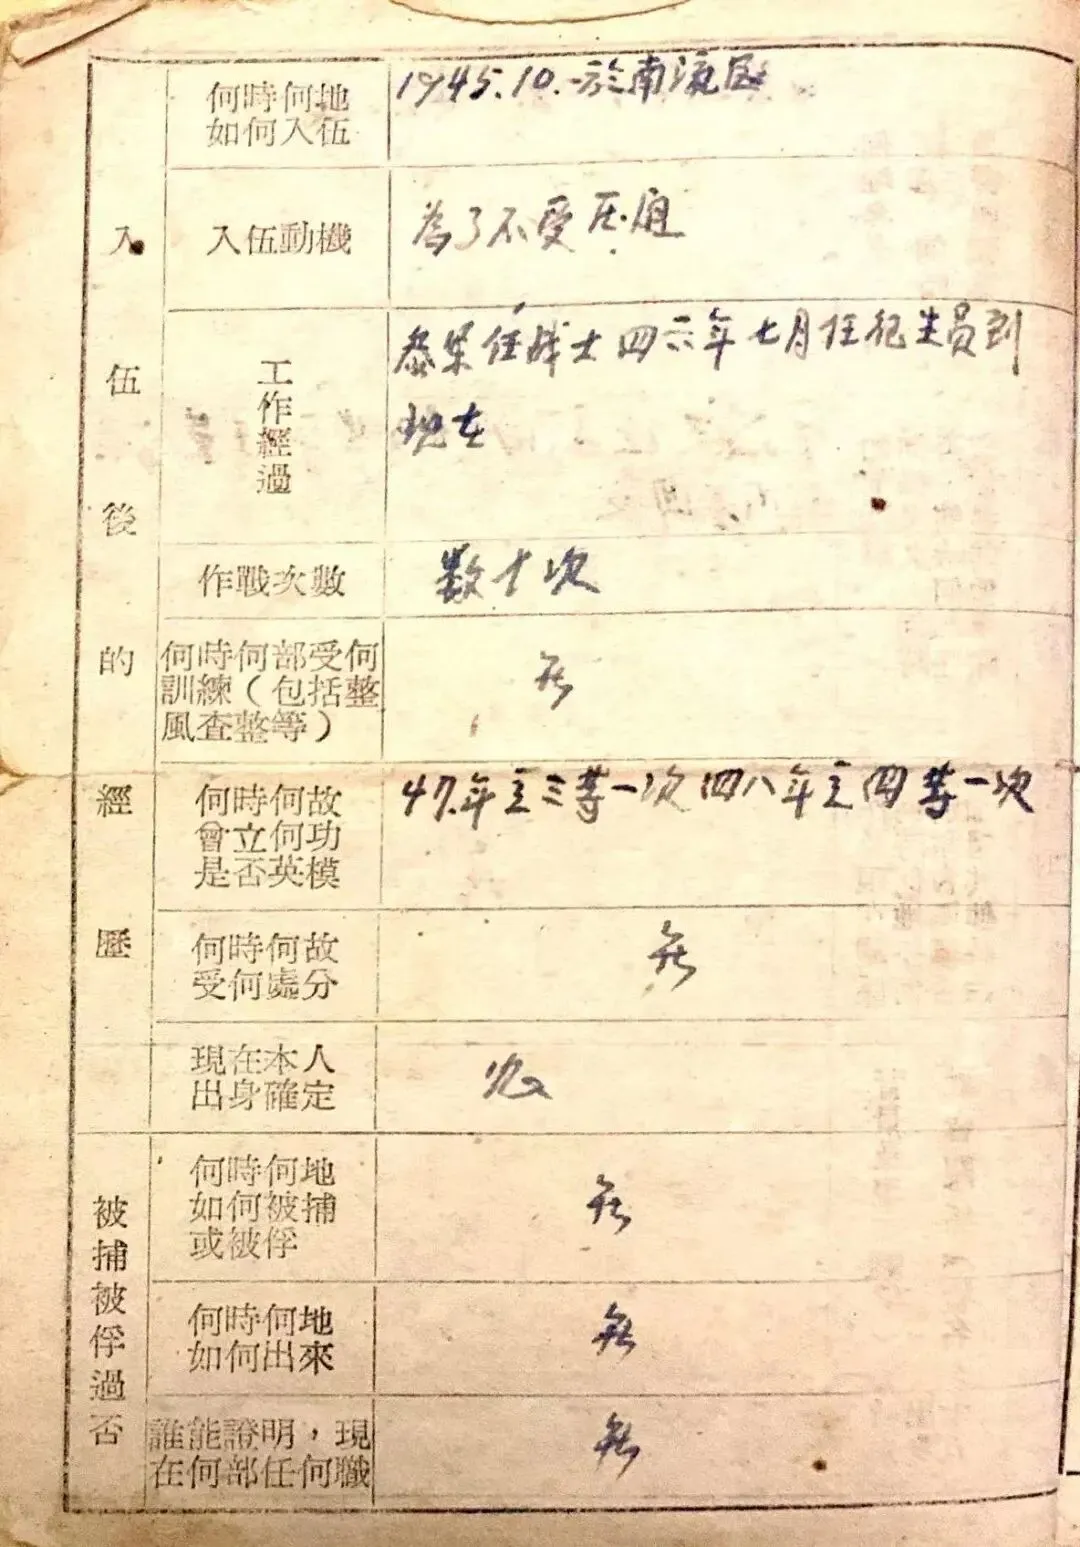 入伍後的經歷
何時何地
如何入伍
1945.10.於南流區
入伍動機
為了不受压迫
工作經過
叅軍任战士四六年七月任衛生員到
现在
作戰次數
数十次
何時何部受何
訓練（包括整
風查整等）
無
何時何故
曾立何功
是否英模
47.年立三等一次四八年立四等一次
何時何故
受何處分
無
現在本人
出身確定
被捕被俘過否
何時何地
如何被捕
或被俘
無
何時何地
如何出來
無
誰能證明，現
在何部任何職
無